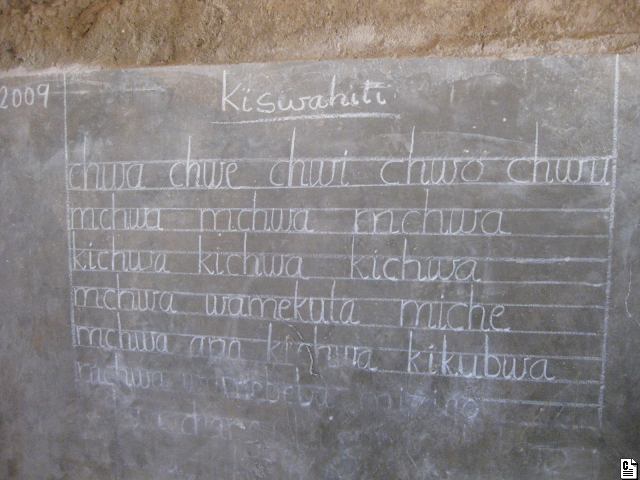 2009
Kiswahili
chwa chwe chwi chwo chwu
mchwa mchwa mchwa
kichwa kichwa kichwa
mchwa wamekula miche
mchwa ana kichwa kikubwa
mchwa wamebeba mizigo